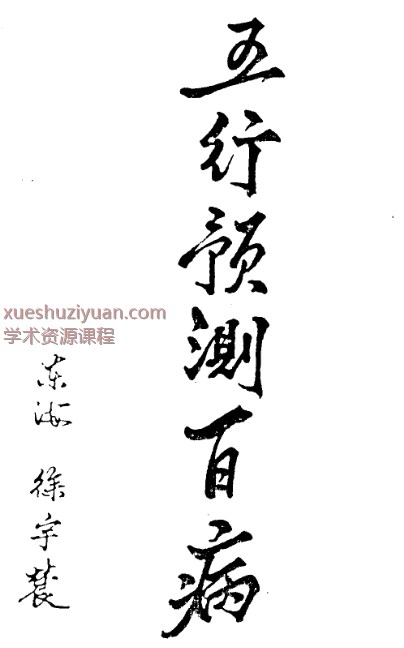 五行预测百病
xueshuziyuan.com
学术资源课程
东海 徐宇辳